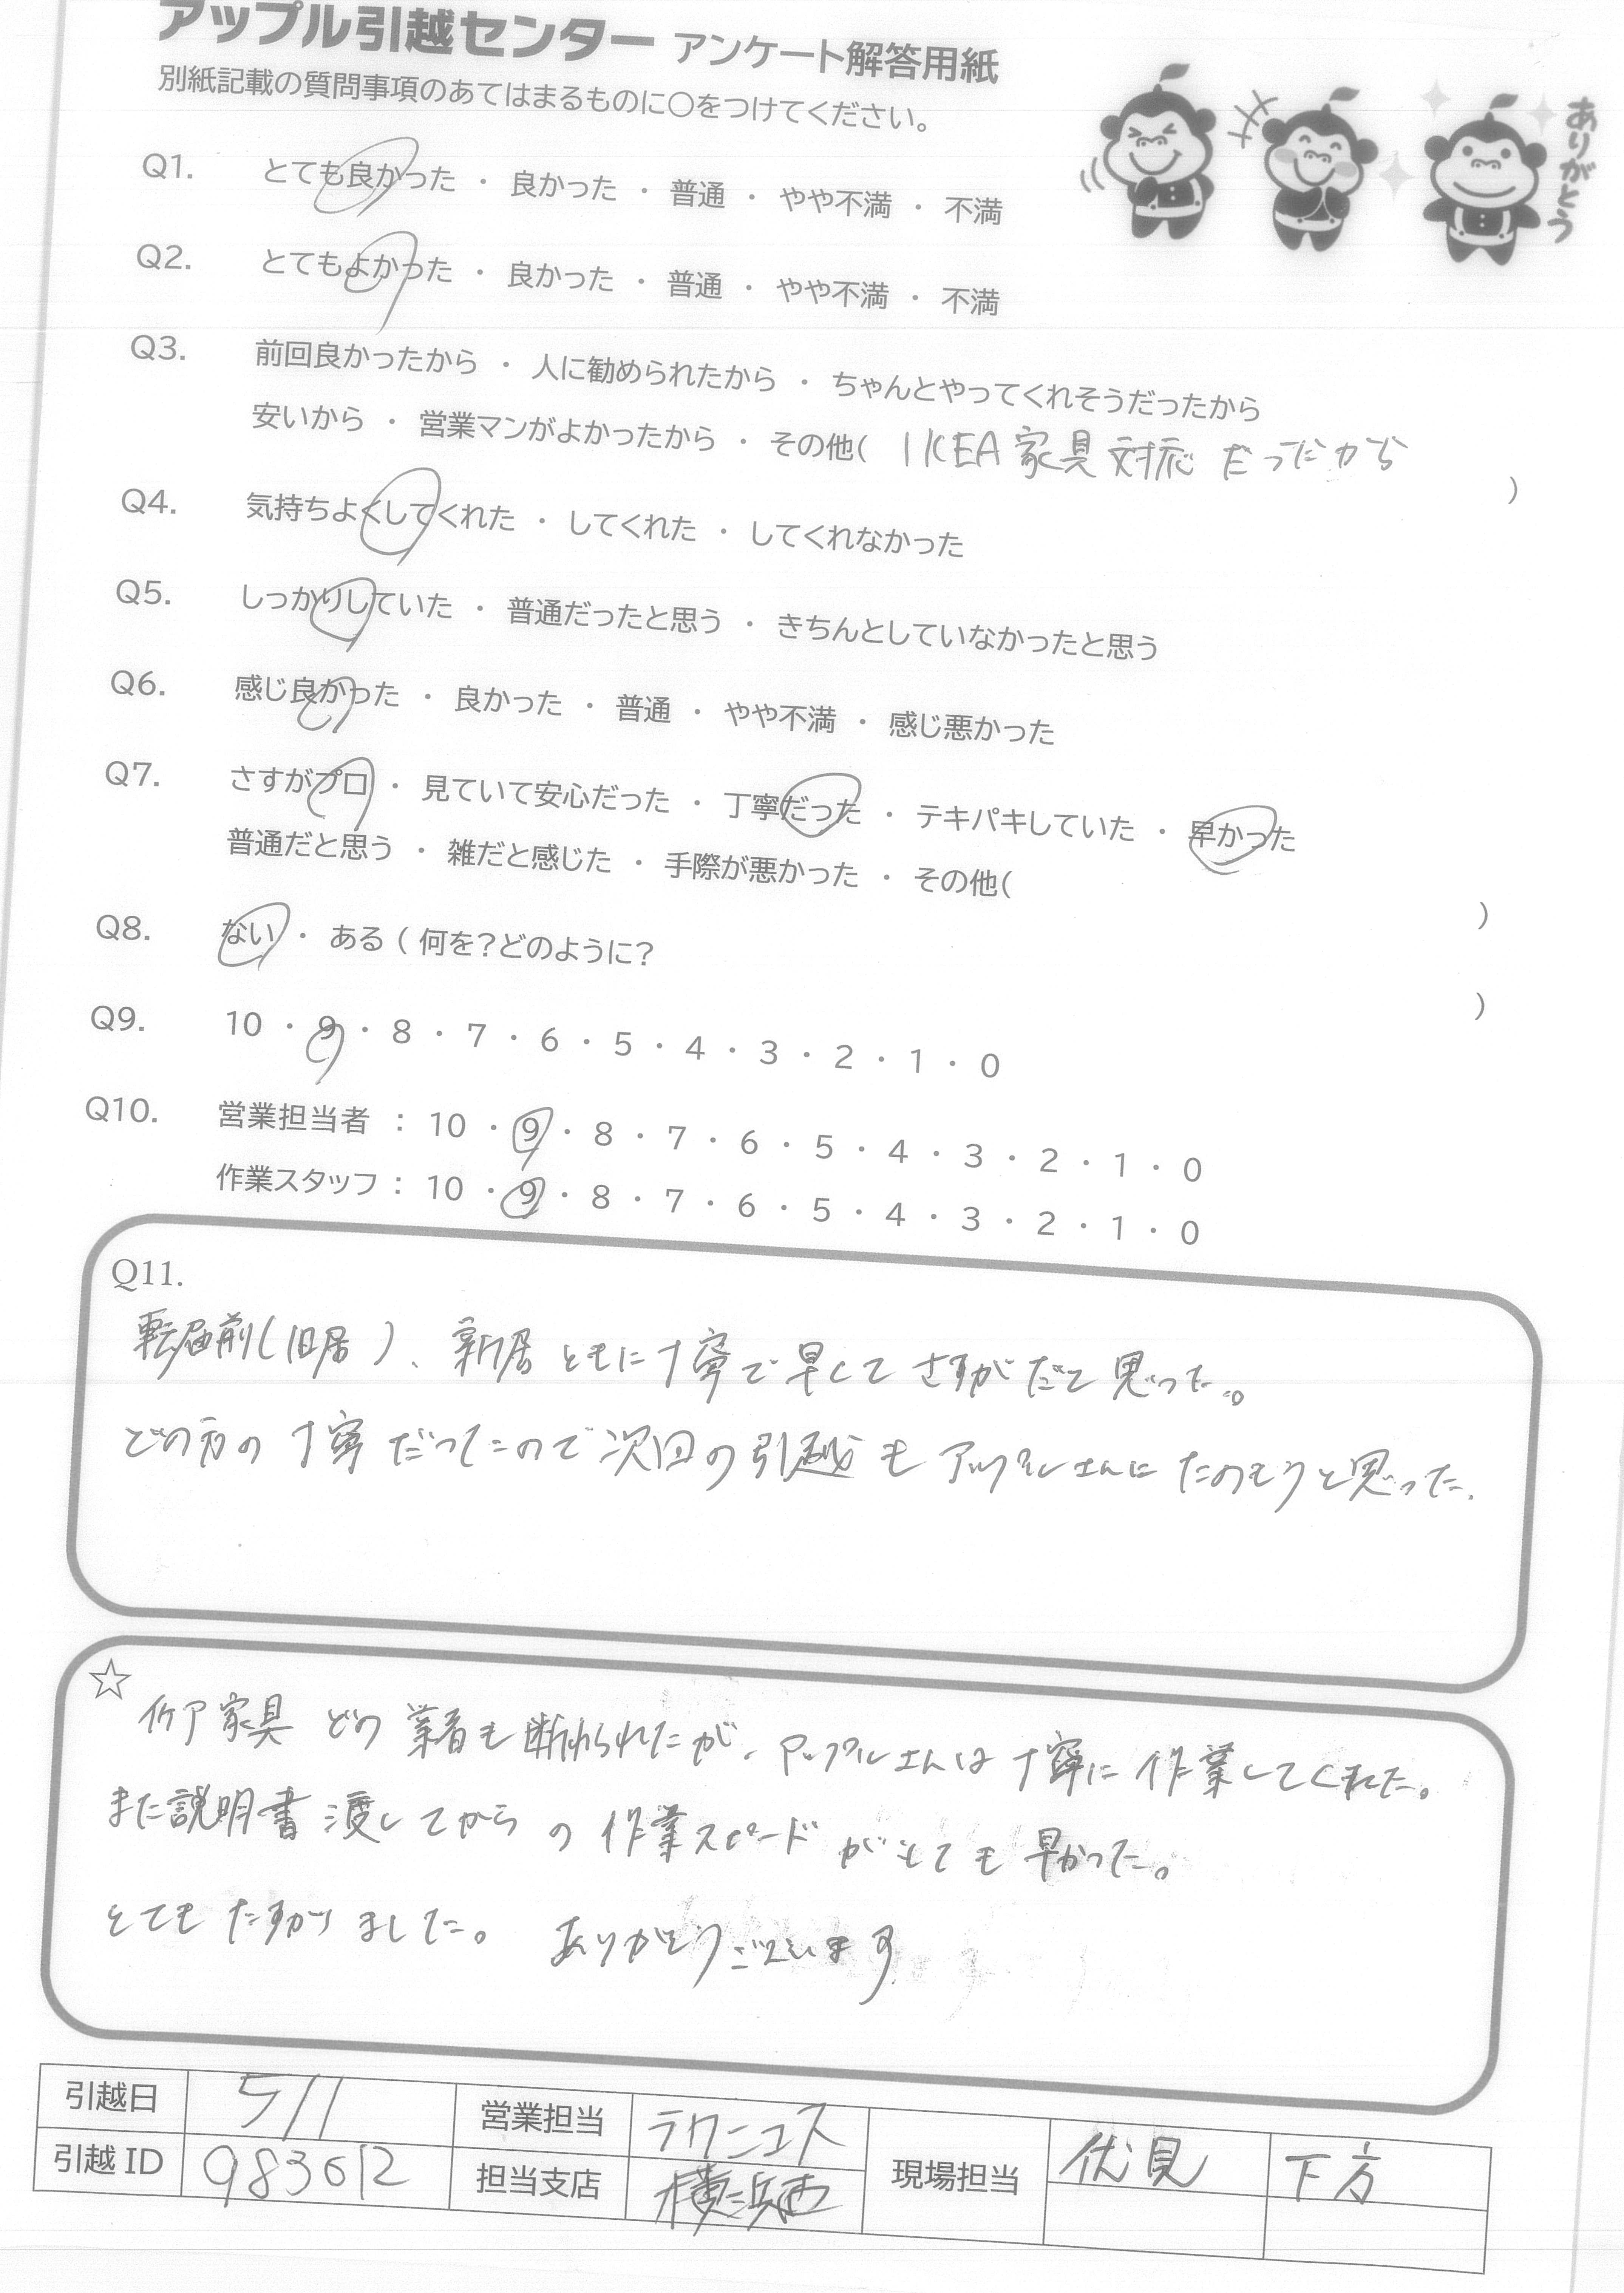 アップル引越センター アンケート解答用紙
別紙記載の質問事項のあてはまるものに〇をつけてください。
ありがとう
Q1. とても良かった ・ 良かった ・ 普通 ・ やや不満 ・ 不満
Q2. とてもよかった ・ 良かった ・ 普通 ・ やや不満 ・ 不満
Q3. 前回良かったから ・ 人に勧められたから ・ ちゃんとやってくれそうだったから
安いから ・ 営業マンがよかったから ・ その他( IKEA家具対応だったから )
Q4. 気持ちよくしてくれた ・ してくれた ・ してくれなかった
Q5. しっかりしていた ・ 普通だったと思う ・ きちんとしていなかったと思う
Q6. 感じ良かった ・ 良かった ・ 普通 ・ やや不満 ・ 感じ悪かった
Q7. さすがプロ ・ 見ていて安心だった ・ 丁寧だった ・ テキパキしていた ・ 早かった
普通だと思う ・ 雑だと感じた ・ 手際が悪かった ・ その他( )
Q8. ない ・ ある ( 何を?どのように? )
Q9. 10 ・ 9 ・ 8 ・ 7 ・ 6 ・ 5 ・ 4 ・ 3 ・ 2 ・ 1 ・ 0
Q10. 営業担当者 : 10 ・ 9 ・ 8 ・ 7 ・ 6 ・ 5 ・ 4 ・ 3 ・ 2 ・ 1 ・ 0
作業スタッフ : 10 ・ 9 ・ 8 ・ 7 ・ 6 ・ 5 ・ 4 ・ 3 ・ 2 ・ 1 ・ 0
Q11.
転居前(旧居)、新居ともに丁寧で早くてさすがだと思った。
どの方の丁寧だったので次回の引越もアップルさんにたのもうと思った.
☆
イケア家具 どの業者も断わられたが、アップルさんは丁寧に作業してくれた。
また説明書渡してからの作業スピードがとても早かった。
とてもたすかりました。 ありがとうございます
引越日 5/1 営業担当 ラクニコス 現場担当 伏見 下方
引越ID 983612 担当支店 横浜西